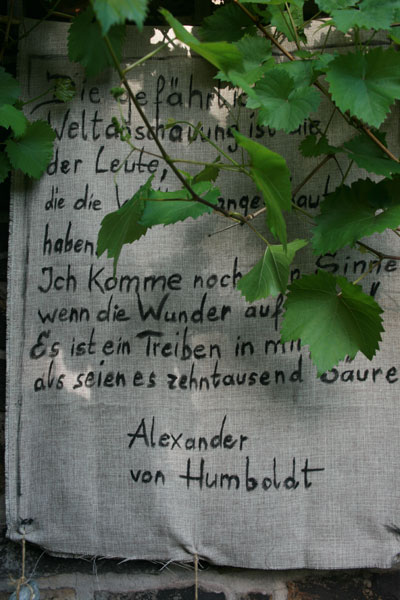 Die gefährlich
Weltanschauung ist die
der Leute,
die die
haben.
Ich Komme noch Sinne
wenn die Wunder auf
Es ist ein Treiben in
als seien es zehntausend Säure
Alexander
von Humboldt